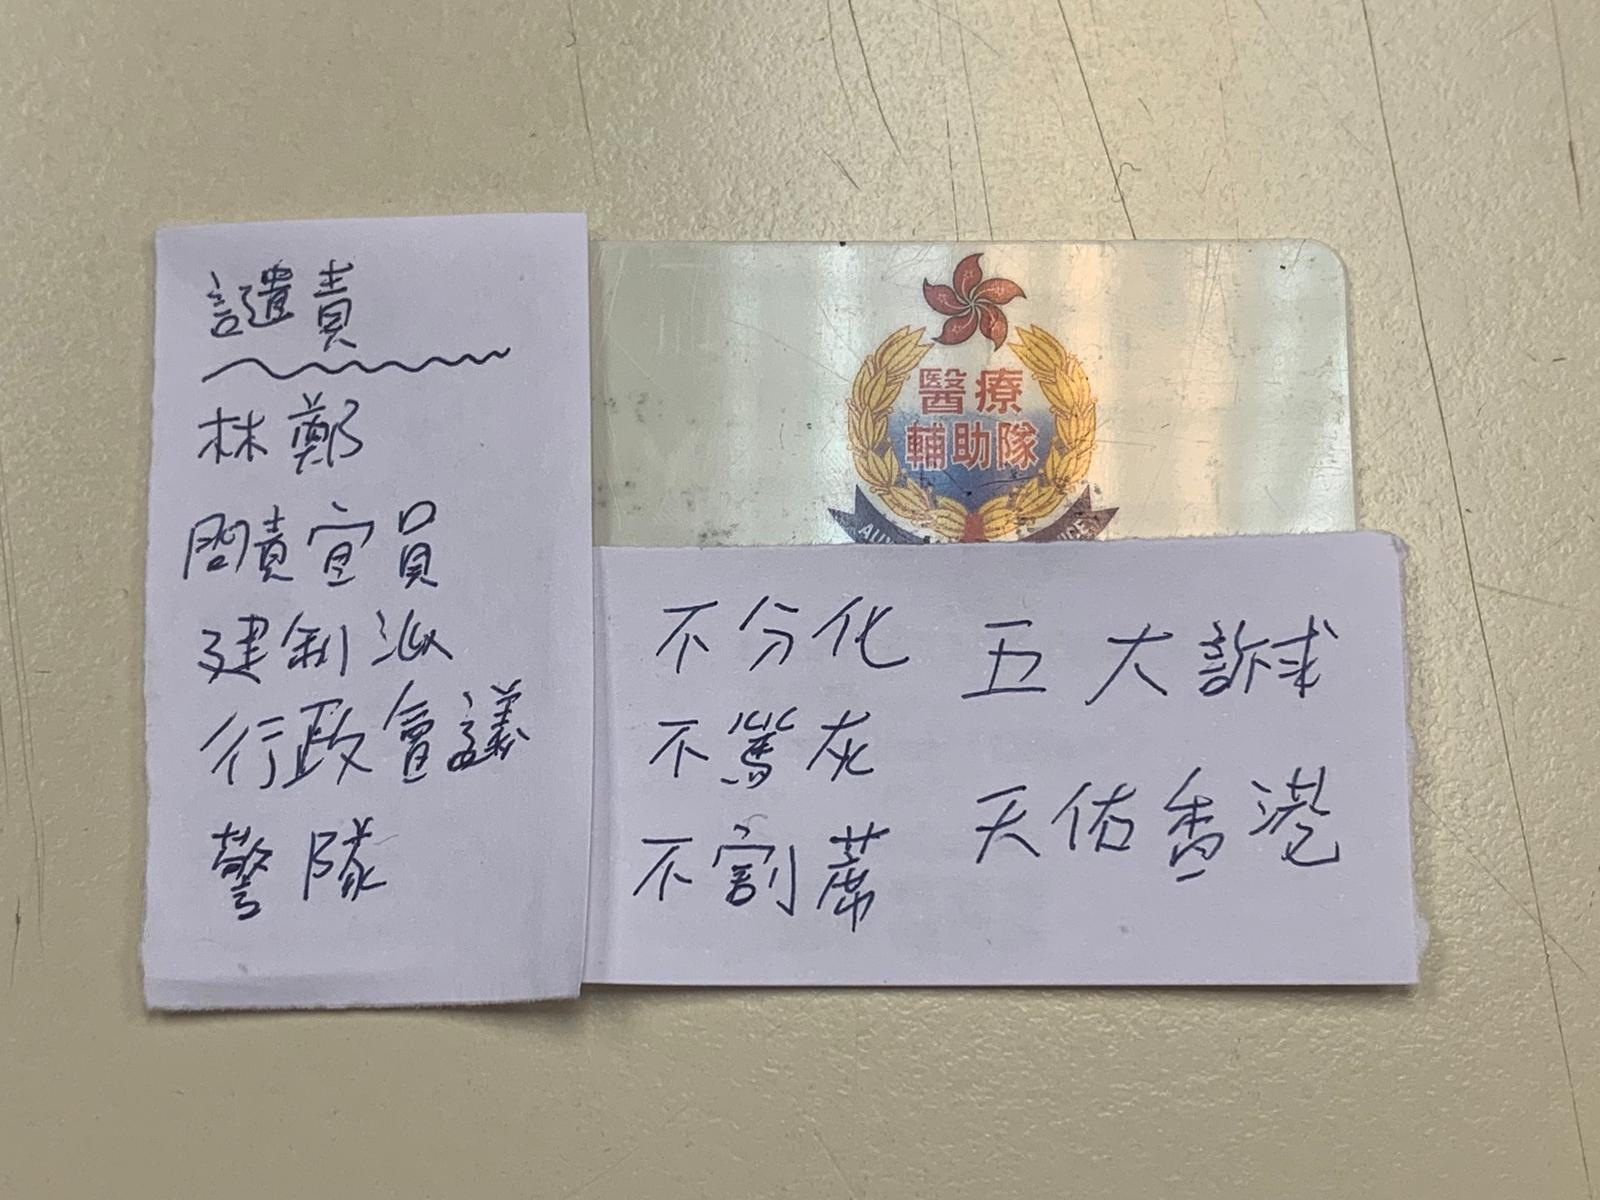 譴責
林鄭
問責官員
建制派
行政會議
警隊
醫療
輔助隊
不分化
不篤灰
不割蓆
五大訴求
天佑香港